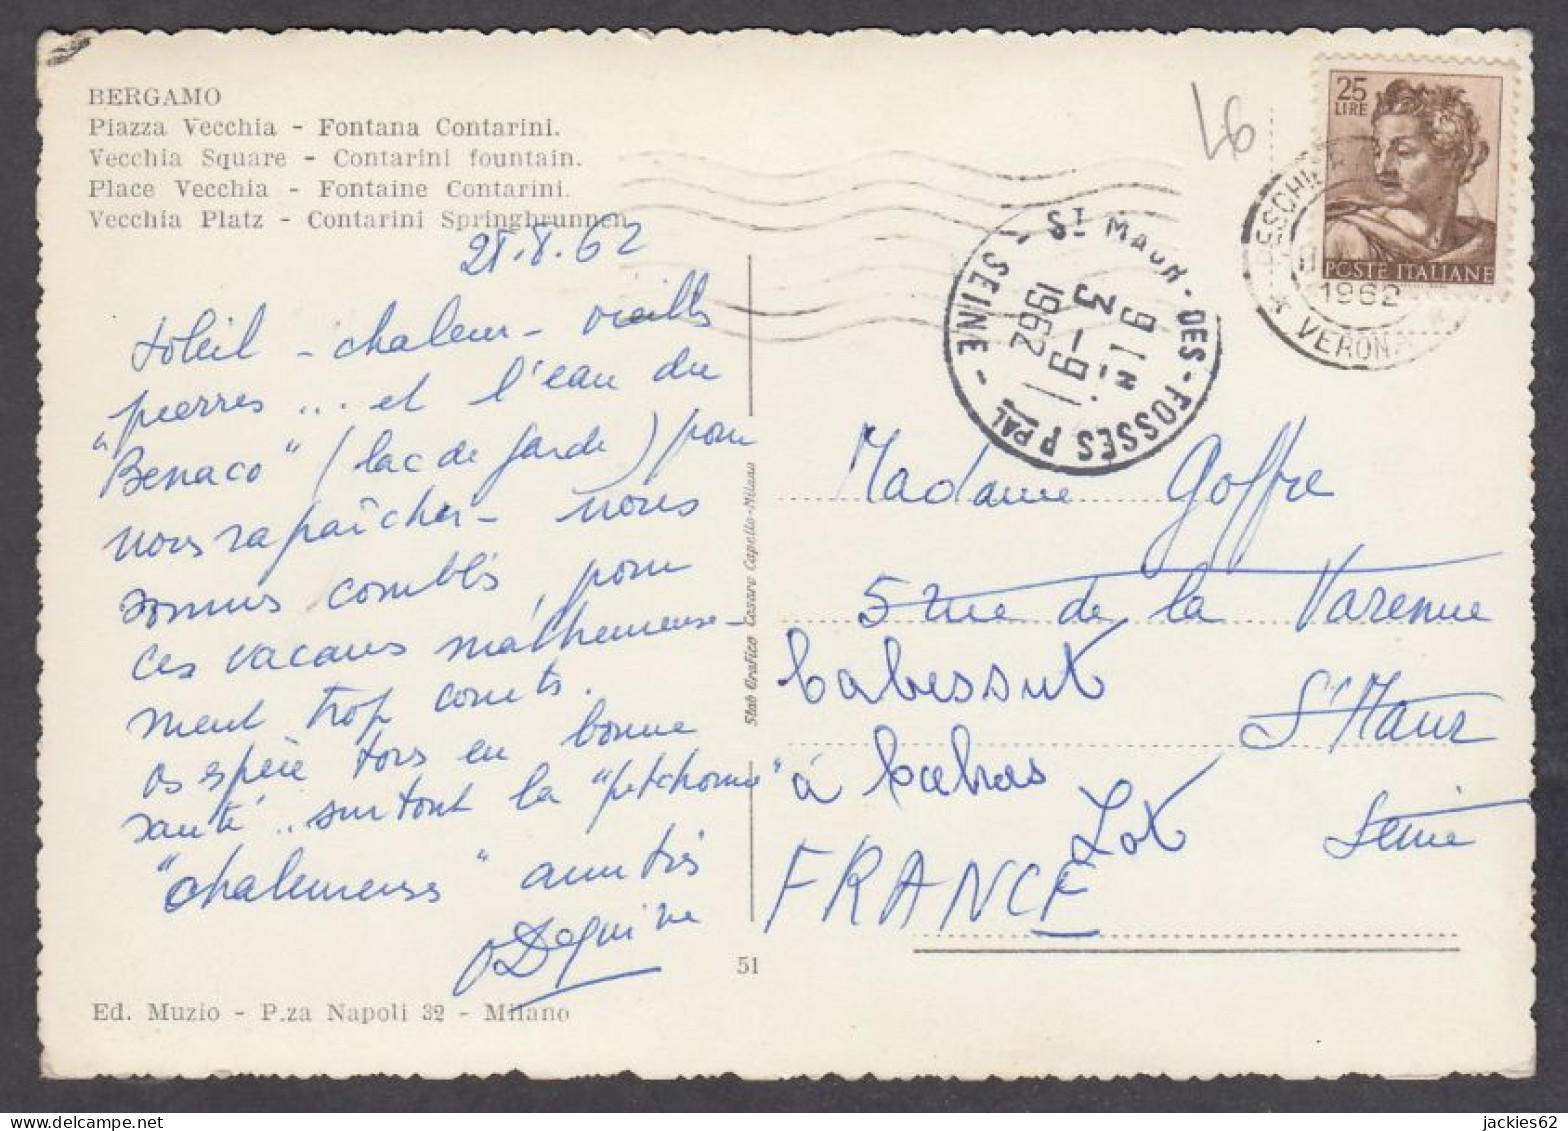 BERGAMO
Piazza Vecchia - Fontana Contarini.
Vecchia Square - Contarini fountain.
Place Vecchia - Fontaine Contarini.
Vecchia Platz - Contarini Springbrunnen
21.8.62
Soleil - chaleur - vieilles
pierres ... et l'eau du
"Benaco" (lac de Garde) pour
nous rafraîcher - nous
sommes comblés, pour
ces vacances malheureuse-
ment trop courts.
espère tous en bonne
santé .. surtout la "pitchoune"
"chaleureuses" amitiés
Deguine
Ed. Muzio - P.za Napoli 32 - Milano
51
Stab Grafico Cesare Capello-Milano
46
25
LIRE
POSTE ITALIANE
PESCHIE
1962
VERONA
ST MAUR-DES-FOSSES PPAL
SEINE
16 H
3 - 9
1962
Madame Goffre
5 rue de la Varenne
St Maur
Seine
Cabessut
à Cahors
Lot
FRANCE
jackies62